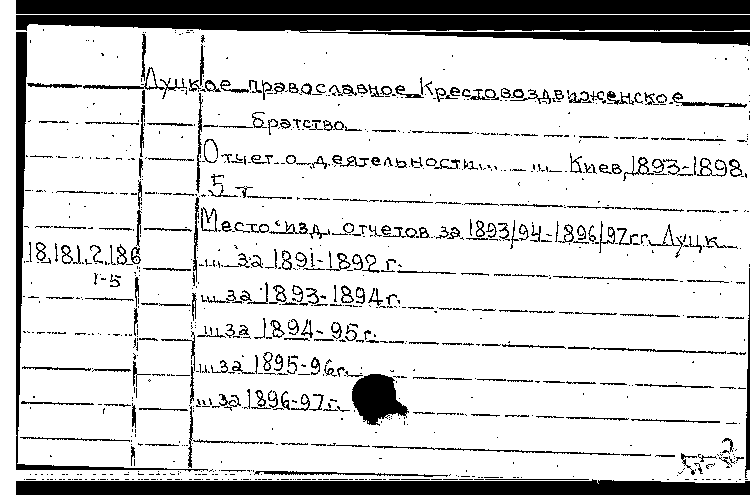 Луцкое православное Крестовоздвиженское
братство
Отчет о деятельности... ... Киев, 1893-1898.
5 т
Место изд. отчетов за 1893/94-1896/97гг. Луцк
18.181.2.186
1-5
... за 1891-1892 г.
... за 1893-1894г.
... за 1894-95г.
... за 1895-96г.
... за 1896-97г.